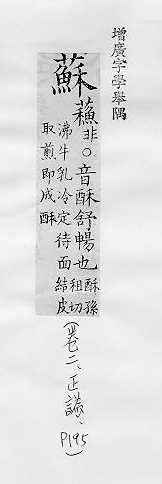 增廣字學舉隅
蘇
蘓非○音酥舒暢也酥孫
租切
沸牛乳冷定待面結皮
取煎即成酥
(卷二、正譌、P195)